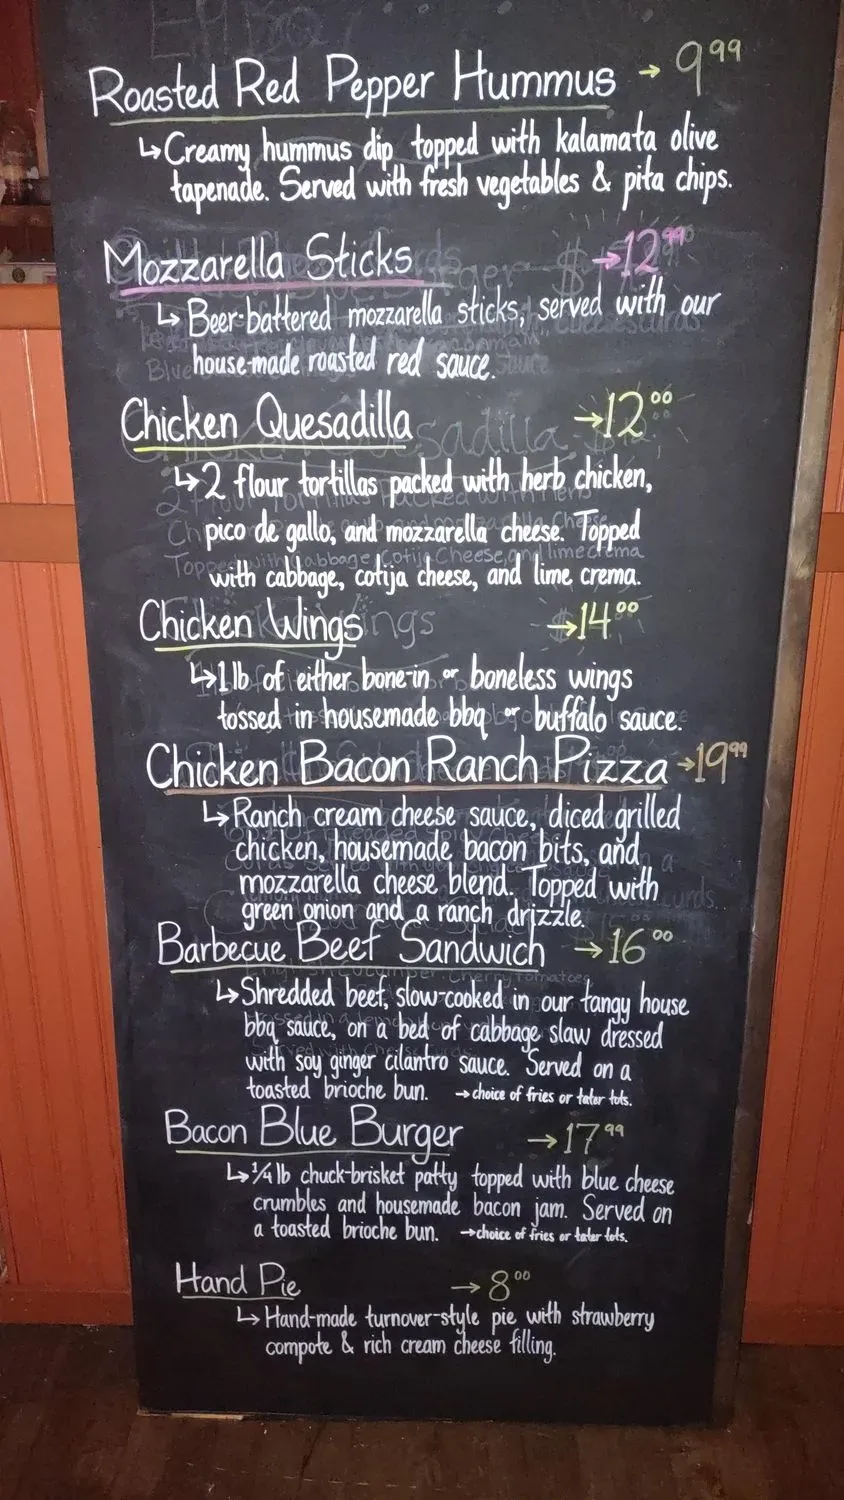 Roasted Red Pepper Hummus → 9.99
↳ Creamy hummus dip topped with kalamata olive
tapenade. Served with fresh vegetables & pita chips.
Mozzarella Sticks → 12.99
↳ Beer-battered mozzarella sticks, served with our
house-made roasted red sauce.
Chicken Quesadilla → 12.00
↳ 2 flour tortillas packed with herb chicken,
pico de gallo, and mozzarella cheese. Topped
with cabbage, cotija cheese, and lime crema.
Chicken Wings → 14.00
↳ 1 lb of either bone-in or boneless wings
tossed in housemade bbq or buffalo sauce.
Chicken Bacon Ranch Pizza → 19.99
↳ Ranch cream cheese sauce, diced grilled
chicken, housemade bacon bits, and
mozzarella cheese blend. Topped with
green onion and a ranch drizzle.
Barbecue Beef Sandwich → 16.00
↳ Shredded beef, slow-cooked in our tangy house
bbq sauce, on a bed of cabbage slaw dressed
with soy ginger cilantro sauce. Served on a
toasted brioche bun. → choice of fries or tater tots.
Bacon Blue Burger → 17.99
↳ 1/4 lb chuck-brisket patty topped with blue cheese
crumbles and housemade bacon jam. Served on
a toasted brioche bun. → choice of fries or tater tots.
Hand Pie → 8.00
↳ Hand-made turnover-style pie with strawberry
compote & rich cream cheese filling.